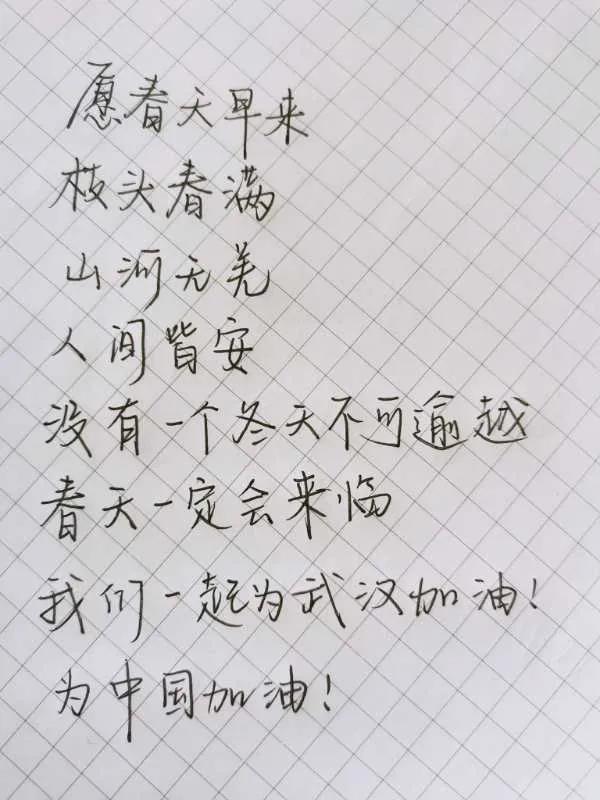 愿春天早来
枝头春满
山河无羌
人间皆安
没有一个冬天不可逾越
春天一定会来临
我们一起为武汉加油！
为中国加油！